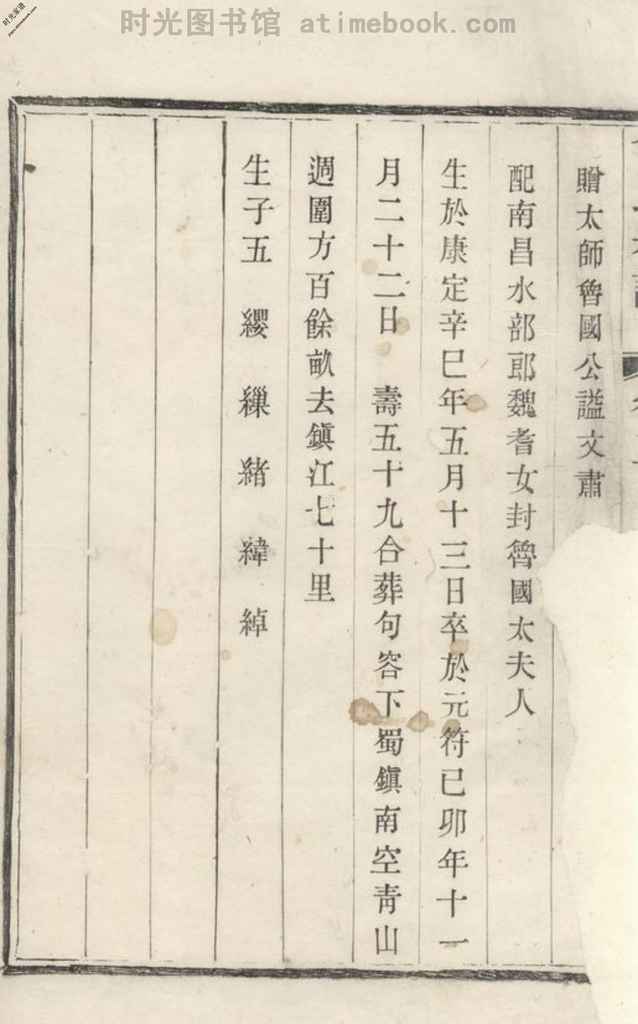 时光图书馆 atimebook.com
贈太師魯國公謚文肅
配南昌水部郎魏耆女封魯國太夫人
生於康定辛巳年五月十三日卒於元符己卯年十一
月二十二日 壽五十九合葬句容下蜀鎮南空青山
週圍方百餘畝去鎮江七十里
生子五 纓 繅 緒 緯 綽